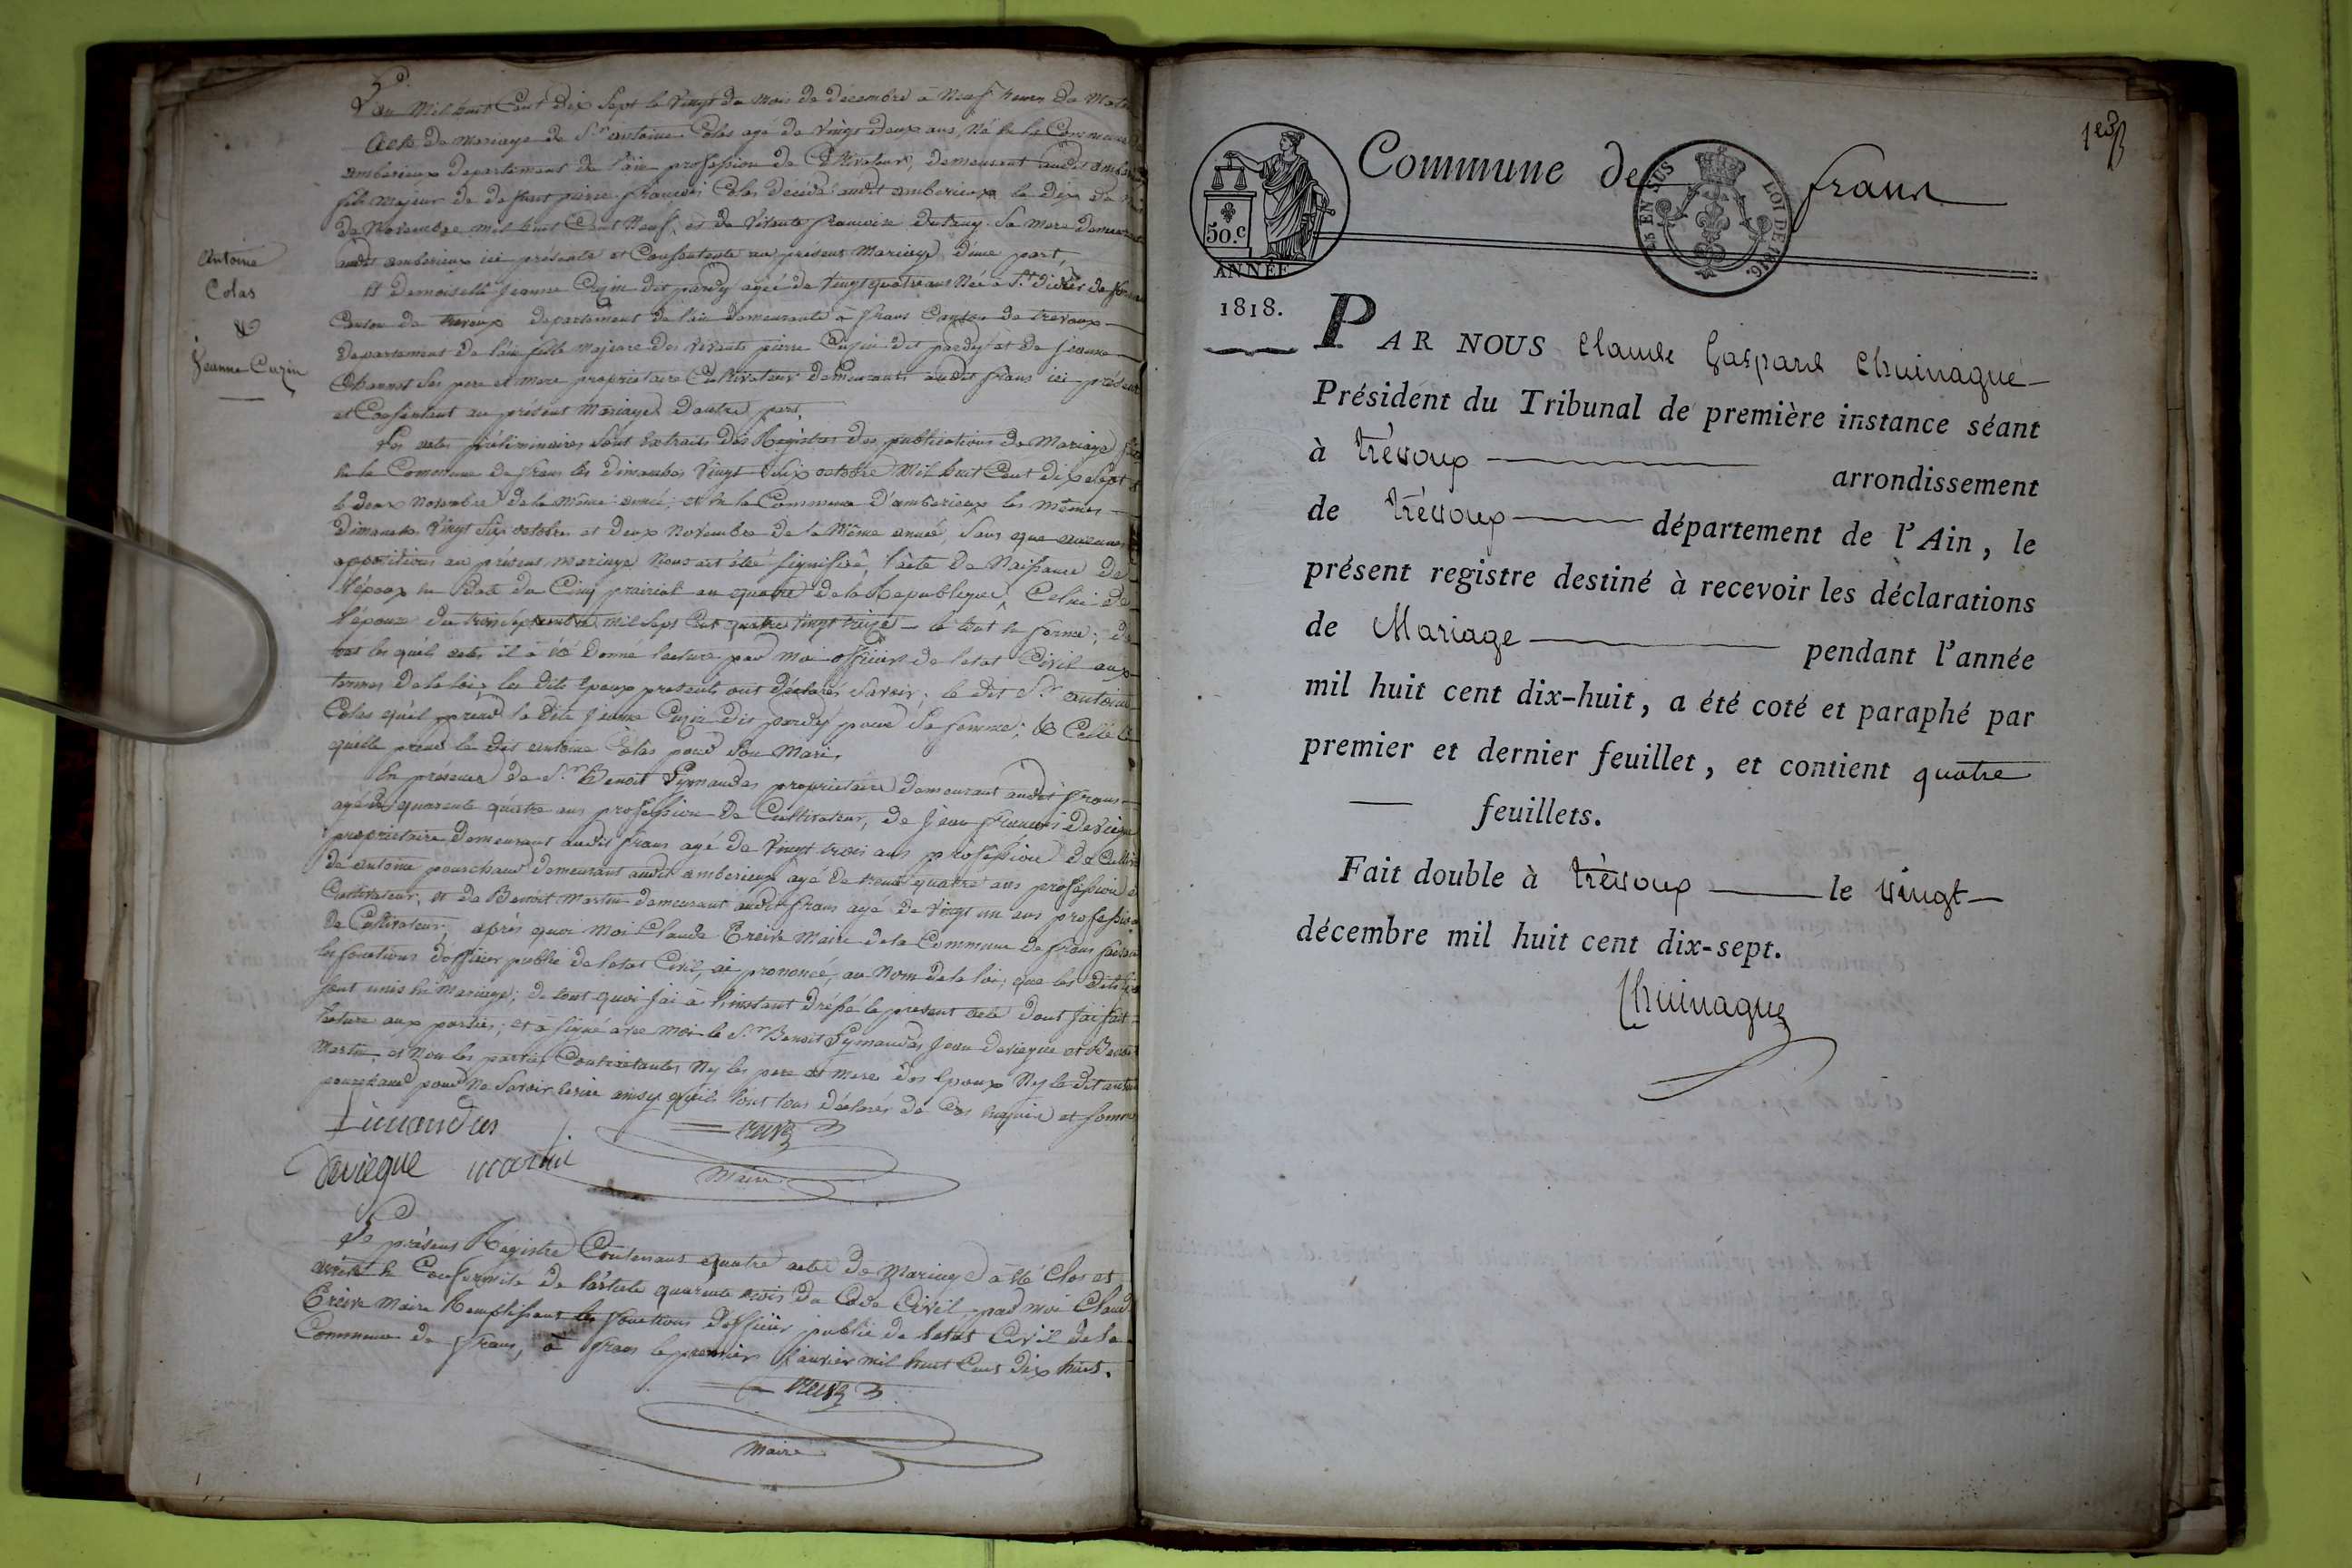 L'an Mil huit Cent Dix Sept le Vingt du mois de décembre à Neuf heures Du Mat
Acte de Mariage de S.r antoine Colas agé de Vingt deux ans, Né en la Commune
amberieux departement de l'ain profession de Cultivateur, demeurant audit amberieux
fils Majeur de defunt pierre françois Colas décédé audit amberieux le Dix du
de Novembre mil huit Cent Neuf, et de Vivante francoise Sa Mere demeurante
audit amberieux ici présente et Consentente au présent Mariage d'une part,
Et demoiselle Jeanne Cuzin dit pardy agée de Vingt quatre ans Née a St. Didier de
Canton de trevoux departement de l'ain demeurante a frans Canton de trevoux
departement de l'ain fille majeure des Vivants pierre Cuzin dit pardy et de Jeanne
Channet Ses pere et mere proprietaire Cultivateur demeurants audit frans ici présent
et Consentant au présent Mariage d'autre part.
Les actes préliminaires Sont extraits des Registres des publications de Mariage
en la Commune de frans les dimanches Vingt Six octobre Mil huit Cent dix Sept
le deux Novembre de la même année; et en la Commune d'amberieux les mêmes
Dimanches Vingt Six octobre et deux Novembre de la Même année, Sans que aucunes
oppositions au présent mariage Nous ait été Signifié, l'acte de Naissance de
l'époux en Date du Cinq prairial an quatre de la Republique, Celui de
l'épouse du trois Septembre mil Sept Cent quatre Vingt treize le tout en forme; de
tout les quels actes il à été Donné lecture par moi officier de letat Civil aux
termes de la loi, les dits Epoux presents ont déclarés Savoir; le dit S.r antoine
Colas qu'il prend la dite Jeanne Cuzin dit pardy pour Sa femme; & Celle Ci
qu'elle prend le dit antoine Colas pour Son Mari.
En présence de S.r Benoit Symandas proprietaire demeurant audit frans
agé de quarente quatre ans profession de Cultivateur, de Jean François Devieque
proprietaire demeurant audit frans agé de Vingt trois ans profession de
de antoine pourchaud demeurant audit amberieux agé de trente quatre ans profession
Cultivateur, et de Benoit Martin demeurant audit frans agé de Vingt un ans profession
de Cultivateur, après quoi Moi Claude Creive Maire de la Commune de frans faisant
les fonctions d'officier public de letat Civil, ai prononcé, au Nom de la loi; que les dits
Sont unis en Mariage; de tout quoi j'ai à l'instant dréssé le present acte dont j'ai fait
lecture aux parties; et à Signé avec moi le S.r Benoit Symandas Jean devieque et Benoit
Martin et Non les parties Contractantes Ny les pere et mere des Epoux Ny le dit antoine
pourchaud pour Ne Savoir Ecrire ainsy qu'ils l'ont tous déclarés de Ces enquis et sommé
Antoine
Colas
&
Jeanne Cuzin
Simandas
Devieque martin
Creive
Maire
Le présent Registre Contenant quatre actes de Mariage à été Clos et
arrêté en Conformité de l'article quarente trois du Code Civil par moi Claude
Creive Maire Remplissant les fonctions d'officier public de letat Civil de la
Commune de frans, à frans le premier Janvier mil huit Cent Dix huit.
Creive
Maire
1er
Commune de frans
50.c
EN SUS
LOI DE 1816.
ANNÉE
1818.
PAR NOUS Claude Gaspard Chuinague
Président du Tribunal de première instance séant
à trévoux arrondissement
de trévoux département de l'Ain, le
présent registre destiné à recevoir les déclarations
de Mariage pendant l'année
mil huit cent dix-huit, a été coté et paraphé par
premier et dernier feuillet, et contient quatre
feuillets.
Fait double à trévoux le vingt
décembre mil huit cent dix-sept.
Chuinague